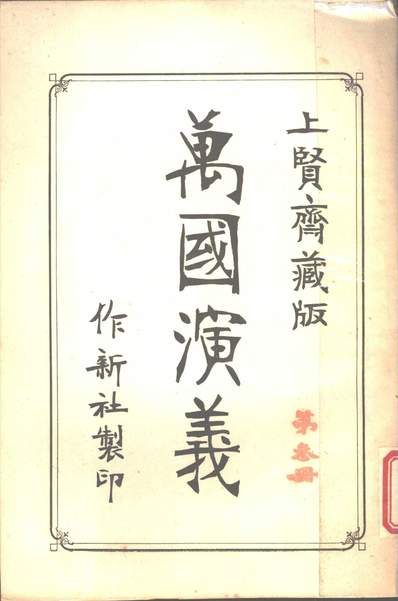 上賢齋藏版
萬國演義
第叁冊
作新社製印